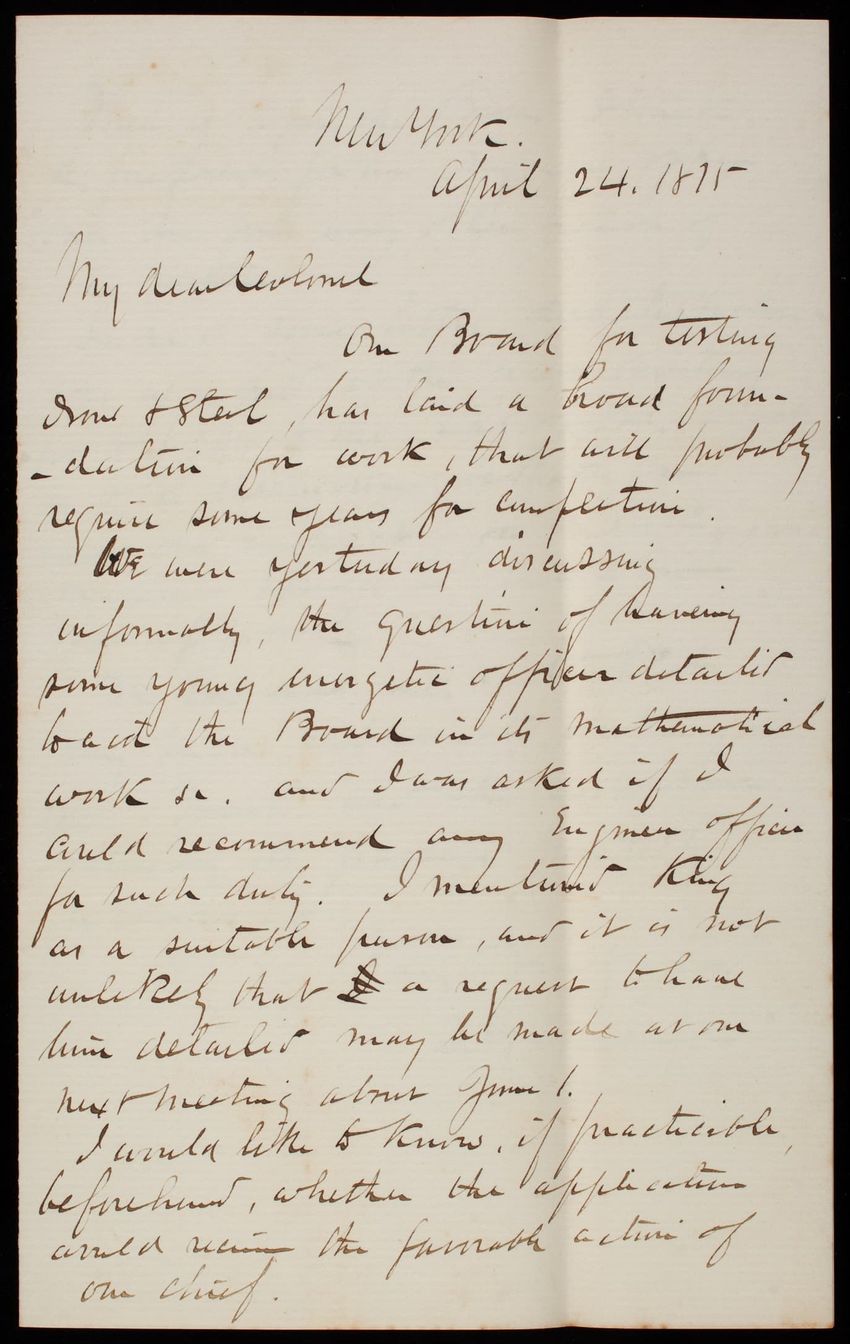 New York.
April 24. 1875
My dear Colonel
Our Board for testing
Iron & Steel, has laid a broad foun-
-dation for work, that will probably
require some years for completion.
We were yesterday discussing
informally, the question of having
some young energetic officer detailed
to aid the Board in its mathematical
work &c. and I was asked if I
could recommend any Engineer officer
for such duty. I mentioned King
as a suitable person, and it is not
unlikely that a request to have
him detailed may be made at our
next meeting about June 1.
I would like to know, if practicable,
beforehand, whether the application
would receive the favorable action of
our chief.